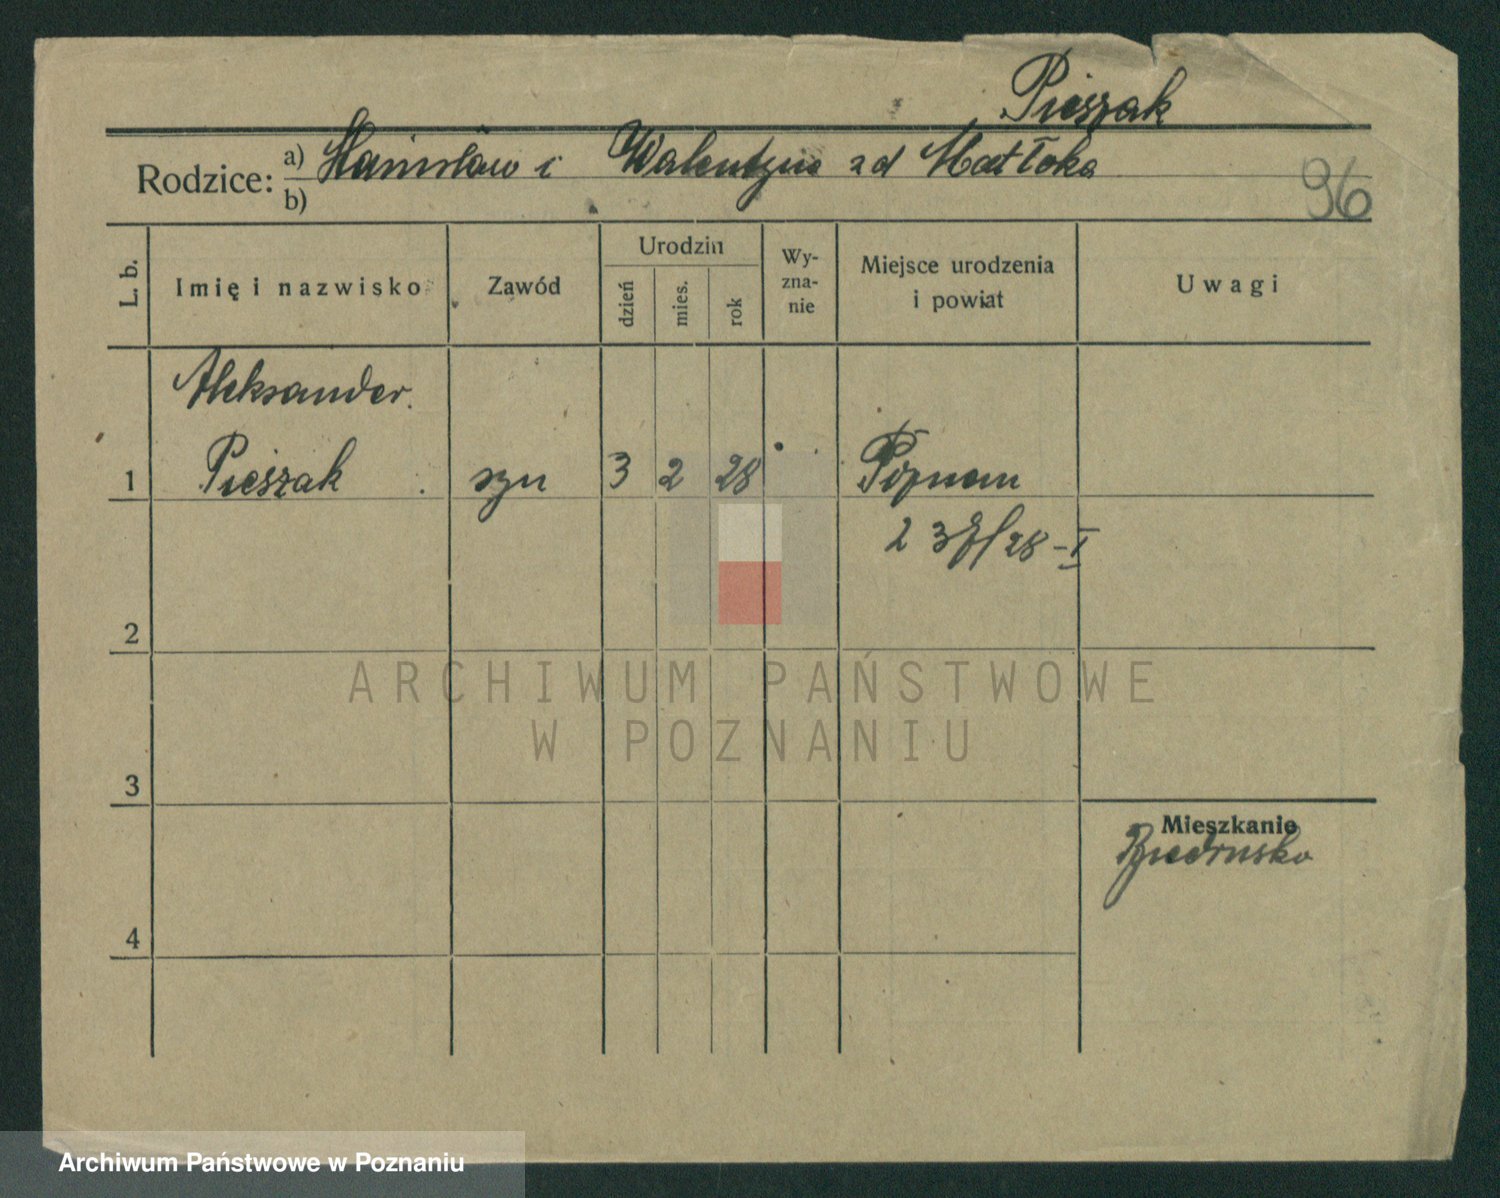 Pieszak
Rodzice: a) Stanisław i Walentyna zd Matłoka
b)
96
L. b.
Imię i nazwisko
Zawód
Urodzin
dzień
mies.
rok
Wy-
zna-
nie
Miejsce urodzenia
i powiat
Uwagi
Aleksander
1 Pieszak syn 3 2 28 Poznań
2
3
4
Mieszkanie
Biedrusko
ARCHIWUM PAŃSTWOWE
W POZNANIU
Archiwum Państwowe w Poznaniu